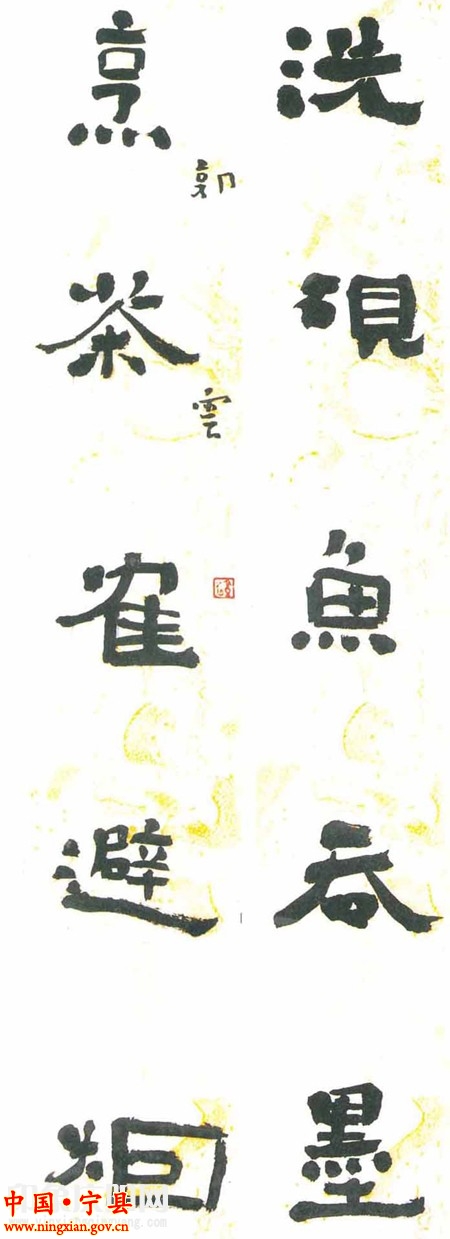 洗硯魚吞墨
烹茶寉避烟
郭雲
中国·宁县
www.ningxian.gov.cn